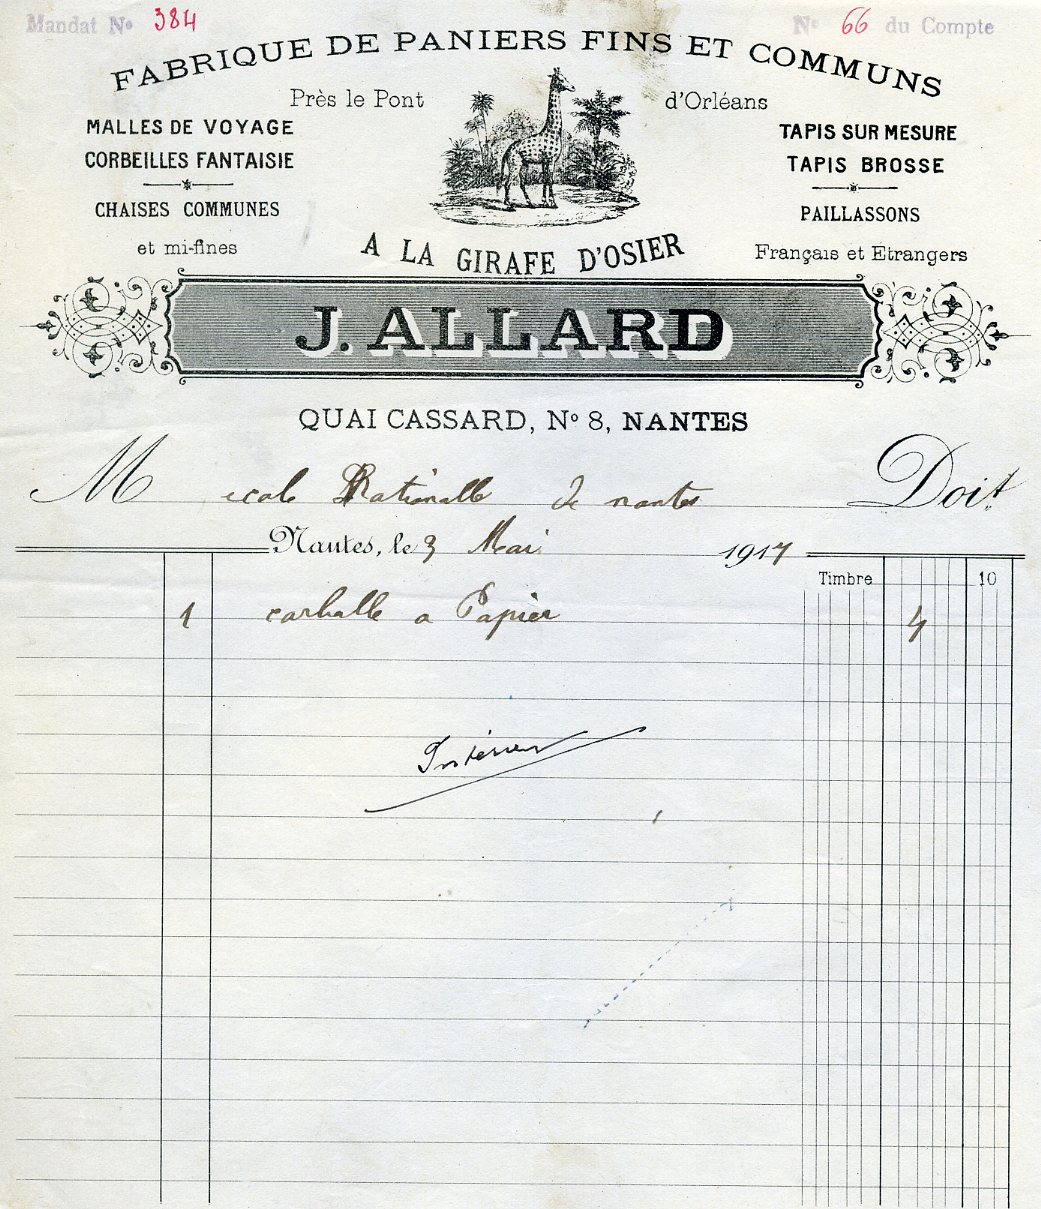 Mandat No 384
No 66 du Compte
FABRIQUE DE PANIERS FINS ET COMMUNS
Près le Pont d'Orléans
MALLES DE VOYAGE
CORBEILLES FANTAISIE
CHAISES COMMUNES
et mi-fines
TAPIS SUR MESURE
TAPIS BROSSE
PAILLASSONS
Français et Etrangers
A LA GIRAFE D'OSIER
J. ALLARD
QUAI CASSARD, No 8, NANTES
M ecole Nationalle de nantes Doit
Nantes, le 3 Mai 1917
Timbre 10
1 corballe a Papier 4
Intérieur